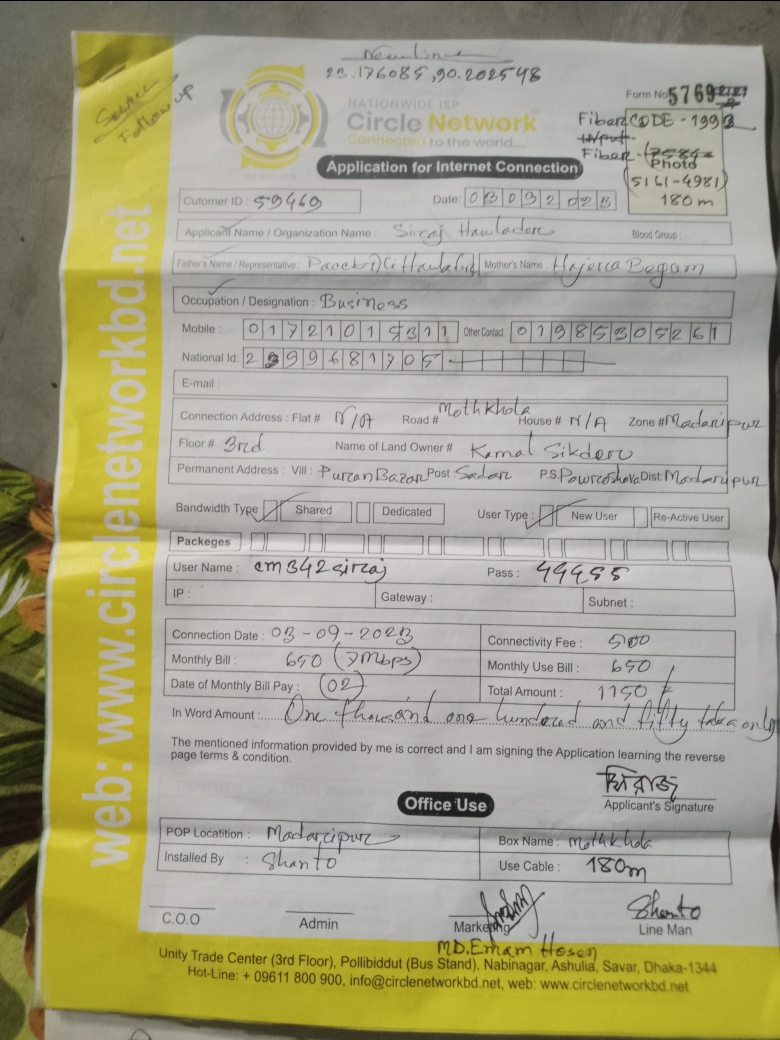 New Line
23.176085,90.202548
Follow up
NATIONWIDE ISP
Circle Network
Connected to the world....
Form No 5769
Fiber CODE - 1993
Fiber -
Photo
(5161-4981)
180m
Application for Internet Connection
Cutomer ID : 59469
Date: 03092023
Applicant Name / Organization Name : Siraj Hawlader
Blood Group :
Father's Name / Representative :
Mother's Name : Hajera Begam
Occupation / Designation : Business
Mobile : 01721015311 Other Contact : 01985305261
National Id:
E-mail :
Connection Address : Flat # N/A Road # Mothkhola House # N/A Zone # Madaripur
Floor # 3rd Name of Land Owner # Kamal Sikder
Permanent Address : Vill : Puran Bazar Post : Sadar P.S Powroshova Dist: Madaripur
Bandwidth Type Shared Dedicated User Type : New User Re-Active User
Packeges
User Name : cm342siraj Pass : 44455
IP : Gateway : Subnet :
Connection Date : 03-09-2023 Connectivity Fee : 500
Monthly Bill : 650 (7Mbps) Monthly Use Bill : 650
Date of Monthly Bill Pay : (02) Total Amount : 1150/
In Word Amount : One thousand one hundred and fifty taka only
The mentioned information provided by me is correct and I am signing the Application learning the reverse
page terms & condition.
সিরাজ
Applicant's Signature
Office Use
POP Locatition : Madaripur Box Name : Mothkhola
Installed By : Shanto Use Cable : 180m
Shanto
C.O.O Admin Marketing Line Man
MD. Emam Hosen
Unity Trade Center (3rd Floor), Pollibiddut (Bus Stand), Nabinagar, Ashulia, Savar, Dhaka-1344
Hot-Line: + 09611 800 900, info@circlenetworkbd.net, web: www.circlenetworkbd.net
web: www.circlenetworkbd.net